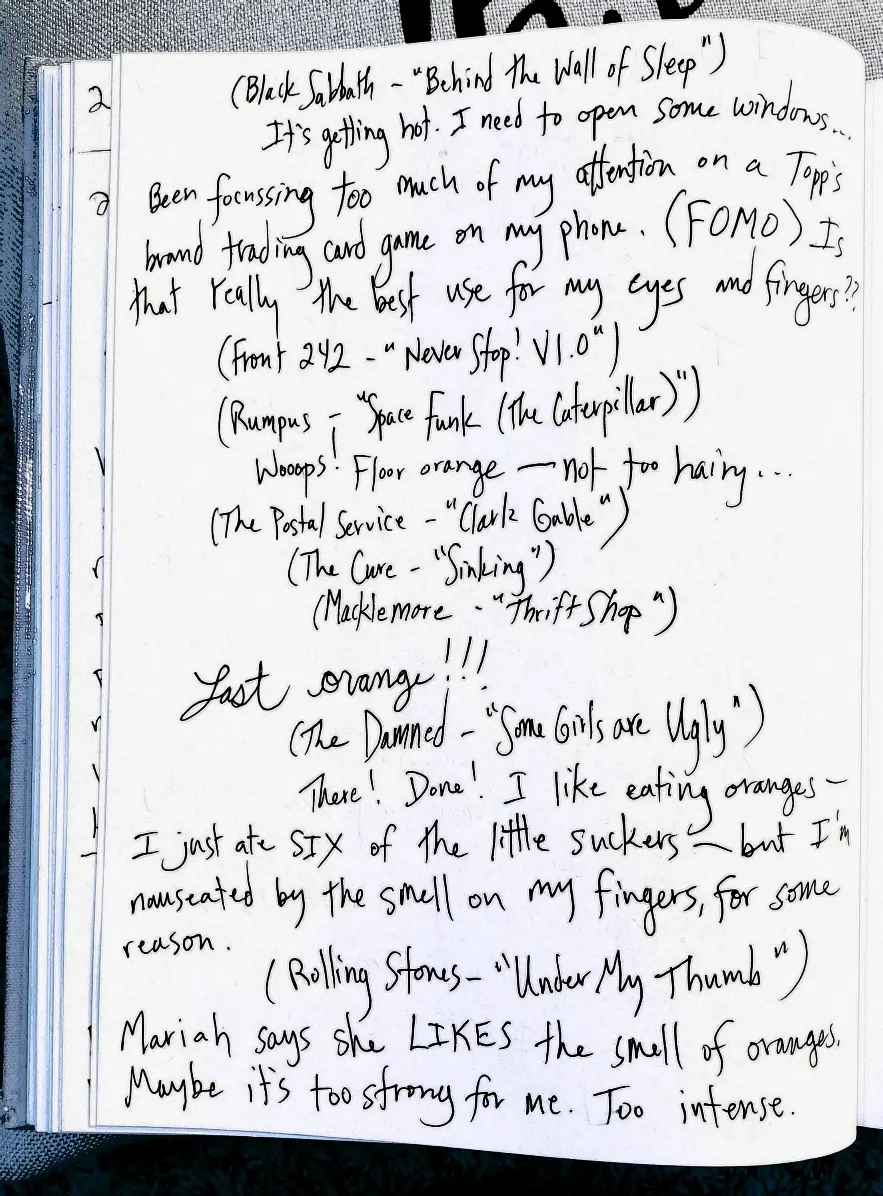 (Black Sabbath - "Behind the Wall of Sleep")
It's getting hot. I need to open some windows...
Been focussing too much of my attention on a Topp's
brand trading card game on my phone. (FOMO) Is
that really the best use for my eyes and fingers??
(Front 242 - "Never Stop! V1.0")
(Rumpus - "Space Funk (The Caterpillar)")
Wooops! Floor orange — not too hairy...
(The Postal Service - "Clark Gable")
(The Cure - "Sinking")
(Macklemore - "Thrift Shop")
Last orange!!!
(The Damned - "Some Girls are Ugly")
There! Done! I like eating oranges —
I just ate SIX of the little suckers — but I'm
nauseated by the smell on my fingers, for some
reason.
(Rolling Stones - "Under My Thumb")
Mariah says she LIKES the smell of oranges.
Maybe it's too strong for me. Too intense.